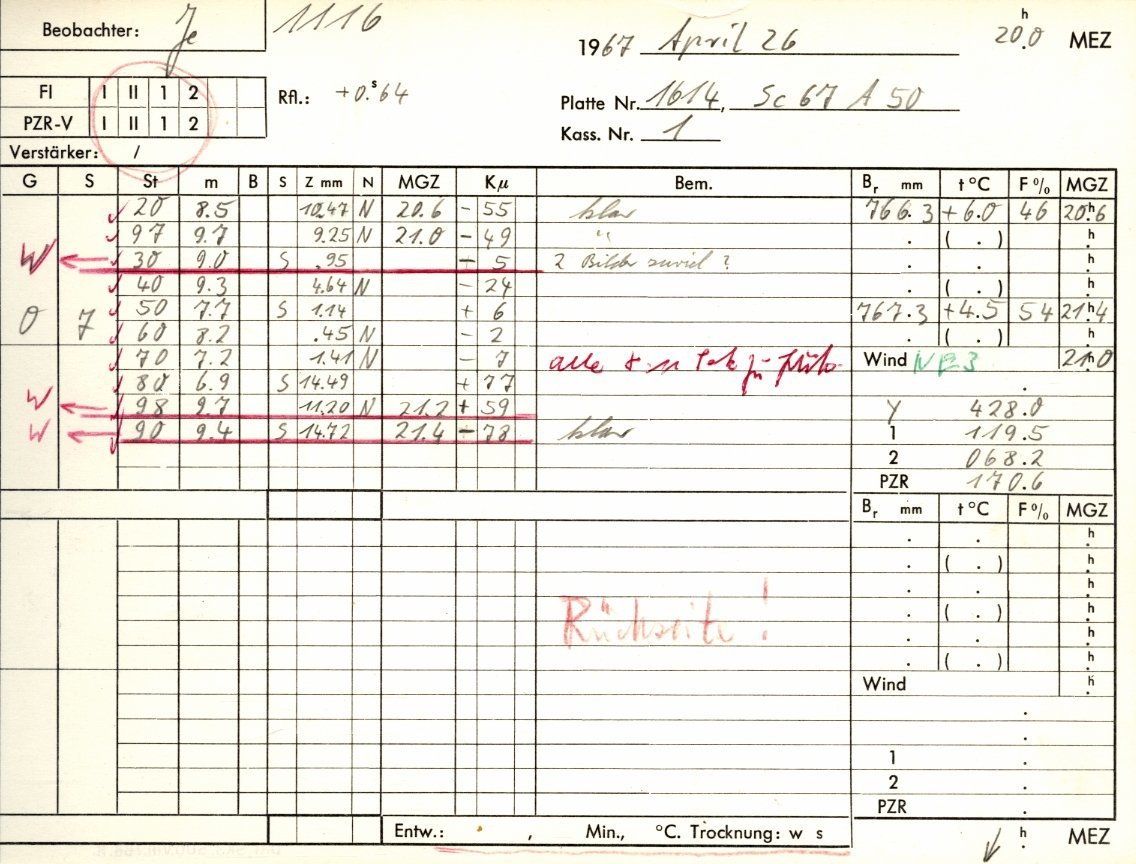 Beobachter: Je 1116
1967 April 26 20.0 h MEZ
FI I II 1 2 Rfl.: +0.s64
PZR-V I II 1 2 Platte Nr. 1614, Sc 67 A 50
Kass. Nr. 1
Verstärker: /
G S St m B S Z mm N MGZ Kμ Bem. Br mm t °C F % MGZ
20 8.5 10.47 N 20.6 - 55 klar 766.3 +6.0 46 20h.6
97 9.7 9.25 N 21.0 - 49 " . ( . ) h.
W 30 9.0 S .95 - 5 2 Bilder zuviel? . . h.
40 9.3 4.64 N - 24 . ( . ) h.
0 7 50 7.7 S 1.14 + 6 767.3 +4.5 54 21h.4
60 8.2 .45 N - 2 . ( . ) h.
70 7.2 1.41 N - 7 alle Wind NE3 21h.0
80 6.9 S 14.49 + 77 .
W 98 9.7 11.20 N 21.2 + 59 y 428.0
W 90 9.4 S 14.72 21.4 - 78 klar 1 119.5
2 068.2
PZR 170.6
Br mm t °C F % MGZ
. . h.
. ( . ) h.
. . h.
Rückseite! . ( . ) h.
. . h.
. ( . ) h.
Wind h.
.
.
1 .
2 .
PZR .
Entw.: . , Min., °C. Trocknung: w s h. MEZ